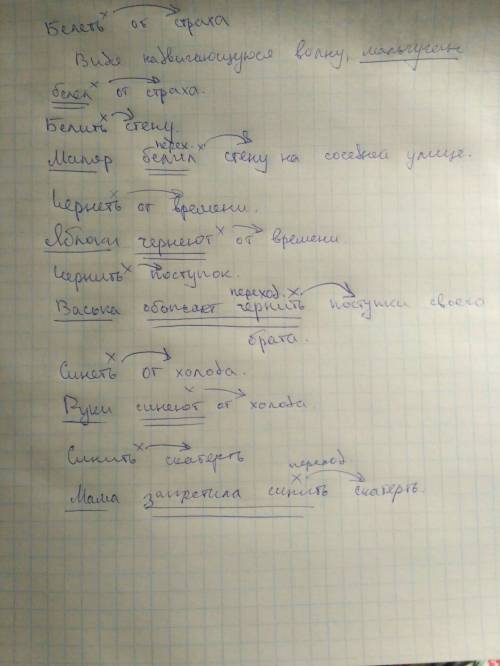 Белеть х от страха
Видя надвигающуюся волну, мальчуган
белел х от страха.
Белить х стену.
перех. х
Маляр белил стену на соседней улице.
Чернеть х от времени.
Яблоки чернеют х от времени.
Чернить х поступок.
переход. х
Васька обожает чернить поступки своего
брата.
х
Синеть от холода.
х
Руки синеют от холода
Синить х скатерть
переход.
х
Мама запретила синить скатерть.